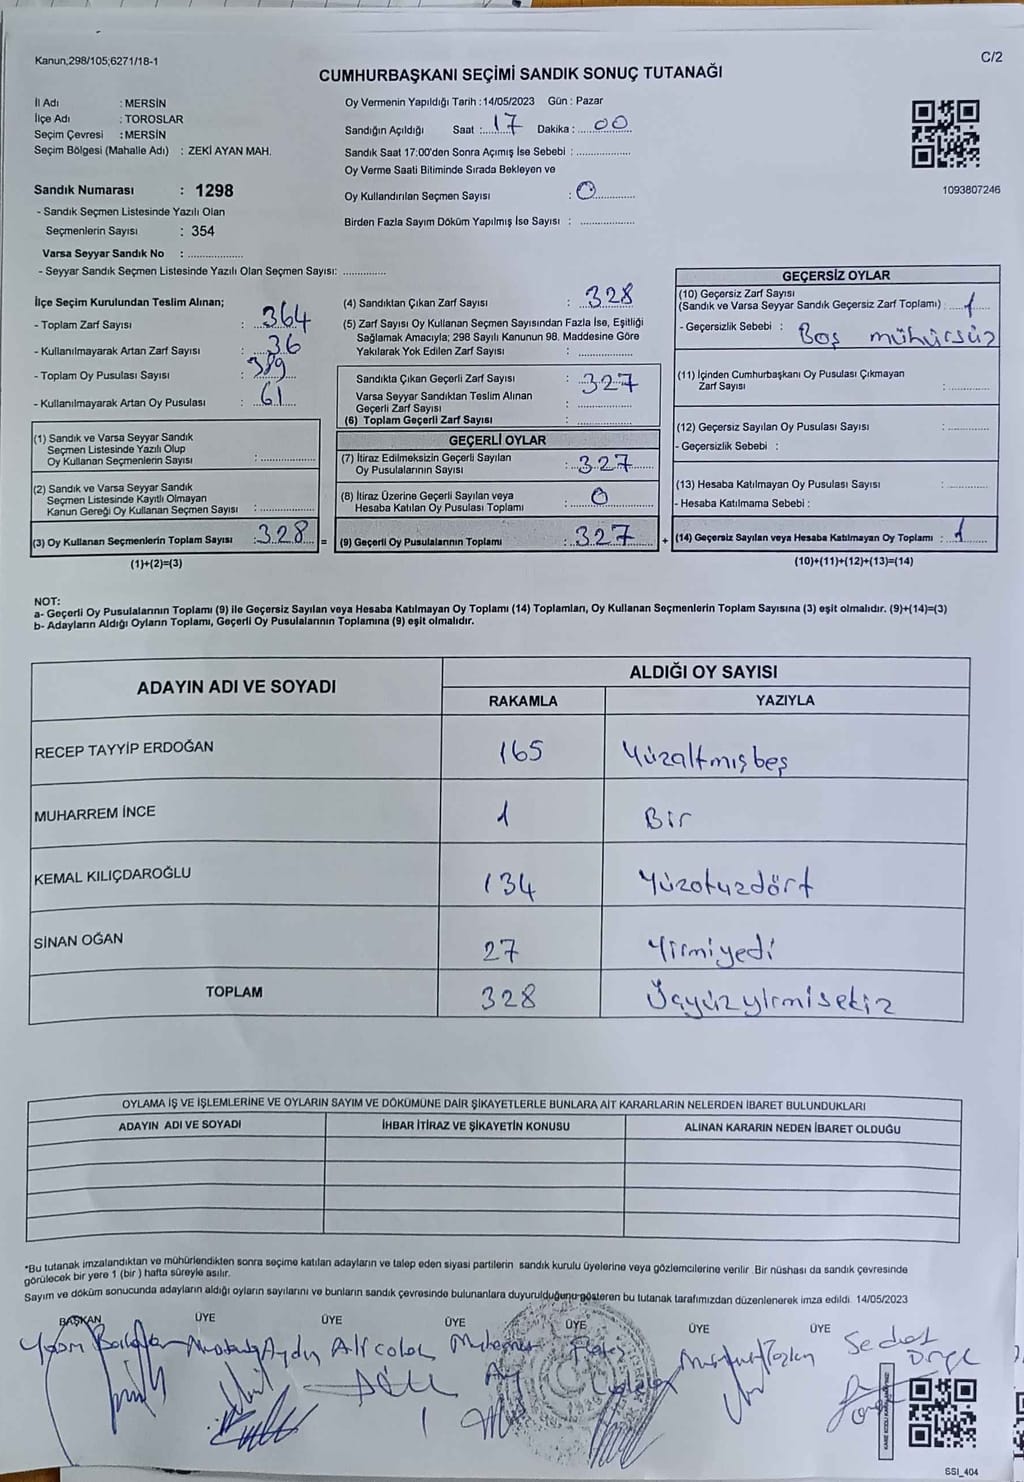 Kanun,298/105;6271/18-1
C/2
CUMHURBAŞKANI SEÇİMİ SANDIK SONUÇ TUTANAĞI
İl Adı : MERSİN
İlçe Adı : TOROSLAR
Seçim Çevresi : MERSİN
Seçim Bölgesi (Mahalle Adı) : ZEKİ AYAN MAH.
Sandık Numarası : 1298
- Sandık Seçmen Listesinde Yazılı Olan
Seçmenlerin Sayısı : 354
Varsa Seyyar Sandık No : ..................
- Seyyar Sandık Seçmen Listesinde Yazılı Olan Seçmen Sayısı: ..............
Oy Vermenin Yapıldığı Tarih :14/05/2023 Gün : Pazar
Sandığın Açıldığı Saat : 17 Dakika : 00
Sandık Saat 17:00'den Sonra Açımış İse Sebebi : ..................
Oy Verme Saati Bitiminde Sırada Bekleyen ve
Oy Kullandırılan Seçmen Sayısı : 0
Birden Fazla Sayım Döküm Yapılmış İse Sayısı : ..................
1093807246
İlçe Seçim Kurulundan Teslim Alınan;
- Toplam Zarf Sayısı : 364
- Kullanılmayarak Artan Zarf Sayısı : 36
- Toplam Oy Pusulası Sayısı : 389
- Kullanılmayarak Artan Oy Pusulası : 61
(1) Sandık ve Varsa Seyyar Sandık
Seçmen Listesinde Yazılı Olup
Oy Kullanan Seçmenlerin Sayısı : ..................
(2) Sandık ve Varsa Seyyar Sandık
Seçmen Listesinde Kayıtlı Olmayan
Kanun Gereği Oy Kullanan Seçmen Sayısı : ..................
(3) Oy Kullanan Seçmenlerin Toplam Sayısı : 328 =
(1)+(2)=(3)
(4) Sandıktan Çıkan Zarf Sayısı : 328
(5) Zarf Sayısı Oy Kullanan Seçmen Sayısından Fazla İse, Eşitliği
Sağlamak Amacıyla; 298 Sayılı Kanunun 98. Maddesine Göre
Yakılarak Yok Edilen Zarf Sayısı : ..................
Sandıkta Çıkan Geçerli Zarf Sayısı : 327
Varsa Seyyar Sandıktan Teslim Alınan
Geçerli Zarf Sayısı : ..................
(6) Toplam Geçerli Zarf Sayısı : ..................
GEÇERLİ OYLAR
(7) İtiraz Edilmeksizin Geçerli Sayılan
Oy Pusulalarının Sayısı : 327
(8) İtiraz Üzerine Geçerli Sayılan veya
Hesaba Katılan Oy Pusulası Toplamı : 0
(9) Geçerli Oy Pusulalarının Toplamı : 327 +
GEÇERSİZ OYLAR
(10) Geçersiz Zarf Sayısı
(Sandık ve Varsa Seyyar Sandık Geçersiz Zarf Toplamı) : 1
- Geçersizlik Sebebi : Boş mühürsüz
(11) İçinden Cumhurbaşkanı Oy Pusulası Çıkmayan
Zarf Sayısı : ..............
(12) Geçersiz Sayılan Oy Pusulası Sayısı : ..............
- Geçersizlik Sebebi :
(13) Hesaba Katılmayan Oy Pusulası Sayısı : ..............
- Hesaba Katılmama Sebebi :
(14) Geçersiz Sayılan veya Hesaba Katılmayan Oy Toplamı : 1
(10)+(11)+(12)+(13)=(14)
NOT:
a- Geçerli Oy Pusulalarının Toplamı (9) ile Geçersiz Sayılan veya Hesaba Katılmayan Oy Toplamı (14) Toplamları, Oy Kullanan Seçmenlerin Toplam Sayısına (3) eşit olmalıdır. (9)+(14)=(3)
b- Adayların Aldığı Oyların Toplamı, Geçerli Oy Pusulalarının Toplamına (9) eşit olmalıdır.
ADAYIN ADI VE SOYADI
ALDIĞI OY SAYISI
RAKAMLA YAZIYLA
RECEP TAYYİP ERDOĞAN 165 Yüzaltmışbeş
MUHARREM İNCE 1 Bir
KEMAL KILIÇDAROĞLU 134 Yüzotuzdört
SİNAN OĞAN 27 Yirmiyedi
TOPLAM 328 Üçyüzyirmisekiz
OYLAMA İŞ VE İŞLEMLERİNE VE OYLARIN SAYIM VE DÖKÜMÜNE DAİR ŞİKAYETLERLE BUNLARA AİT KARARLARIN NELERDEN İBARET BULUNDUKLARI
ADAYIN ADI VE SOYADI İHBAR İTİRAZ VE ŞİKAYETİN KONUSU ALINAN KARARIN NEDEN İBARET OLDUĞU
*Bu tutanak imzalandıktan ve mühürlendikten sonra seçime katılan adayların ve talep eden siyasi partilerin sandık kurulu üyelerine veya gözlemcilerine verilir .Bir nüshası da sandık çevresinde
görülecek bir yere 1 (bir ) hafta süreyle asılır.
Sayım ve döküm sonucunda adayların aldığı oyların sayılarını ve bunların sandık çevresinde bulunanlara duyurulduğunu gösteren bu tutanak tarafımızdan düzenlenerek imza edildi. 14/05/2023
BAŞKAN ÜYE ÜYE ÜYE ÜYE ÜYE ÜYE
Aydın Ali
SSI_404